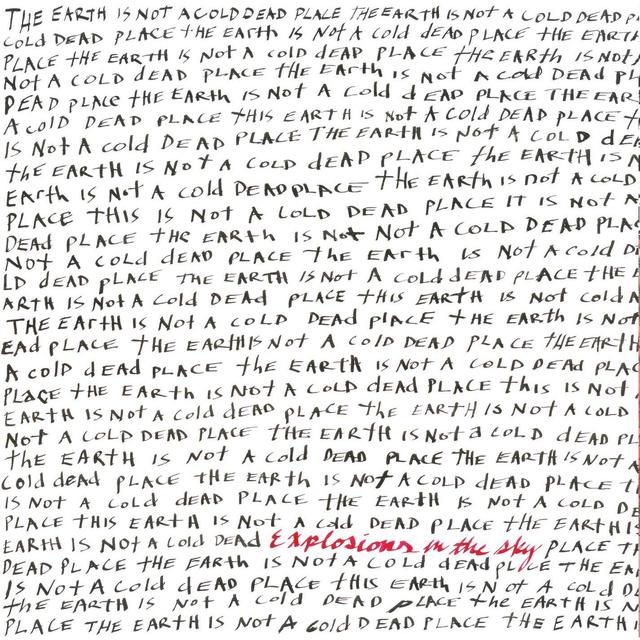 THE EARTH IS NOT A COLD DEAD PLACE THE EARTH IS NOT A COLD DEAD P
Cold DEAD PLACE tHE EARtH IS NoT A cold dEAD PLACE tHE EARTH
PLACE tHE EARTH IS Not A cold dEAD PLACE tHE EARTH IS NoT
Not A COLD dEAD PLACE tHE EARth is NoT A cold DEAd Pl
DEAD PlACe tHE EARth is Not A Cold dEAD PLACE THE EAR
A colD DEAD PLACE tHIS EARTH IS Not A Cold DEAD PLACE t
IS Not A cold DEAD PLACE THE EARtH IS NoT A COLD dEA
tHE EARTH IS NoT A COLD dEAD PLACE tHE EARTH IS N
EARth IS Not A Cold DEAD PLACE tHE EARth is not A COLD
PLACE THIS IS Not A COLD DEAD PLACE IT IS Not A
DEAd PLACE tHE EARtH IS Not Not A COLD DEAD PLAC
NoT A Cold dEAD PLACE THE EARtH is Not A cold D
LD dEAD pLACE tHE EARTH IS Not A Cold dEAD PLACE tHE
ARTH IS Not A Cold DEAd PLACE tHIS EARTH IS Not cold A
THE EARtH IS Not A COLD DEAD PlACE tHE EARTH IS Not
EAd PLACE tHE EARtH IS Not A COLD DEAD PLACE tHE EARtH
A colD dEAD PLACE tHE EARTH IS Not A COLD DEAD PLAC
PlACE tHE EARtH IS Not A COLD dEAD PLACE this IS Not
EARTH IS Not A Cold dEAD PLACE the EARTH IS Not A COLD
Not A COLD DEAD PLACE THE EARTH IS Not a COLD dEAD PL
the EARTH IS Not A Cold DEAD PLACE tHE EARTH IS Not A
Cold dead PLACE tHE EARtH is NoT A COLD dEAD PLACE t
IS NoT A cold dEAD PLACE tHE EARTH IS NoT A COLD DE
PLACE THIS EARTH IS Not A cold DEAD PLACE tHE EARtH I
EARTH IS Not A Cold DEAd Explosions in the sky PLACE T
DEAD PLACE tHE EARTH IS Not A COLD dEAd PLACE tHE EA
IS NoT A Cold DEAD PLACE tHIS EARth IS NOT A COLD D
tHE EARTH IS NoT A Cold DEAD PLACE tHE EARTH IS N
PLACE tHE EARTH IS NoT A Cold DEAD PLACE tHE EARTH